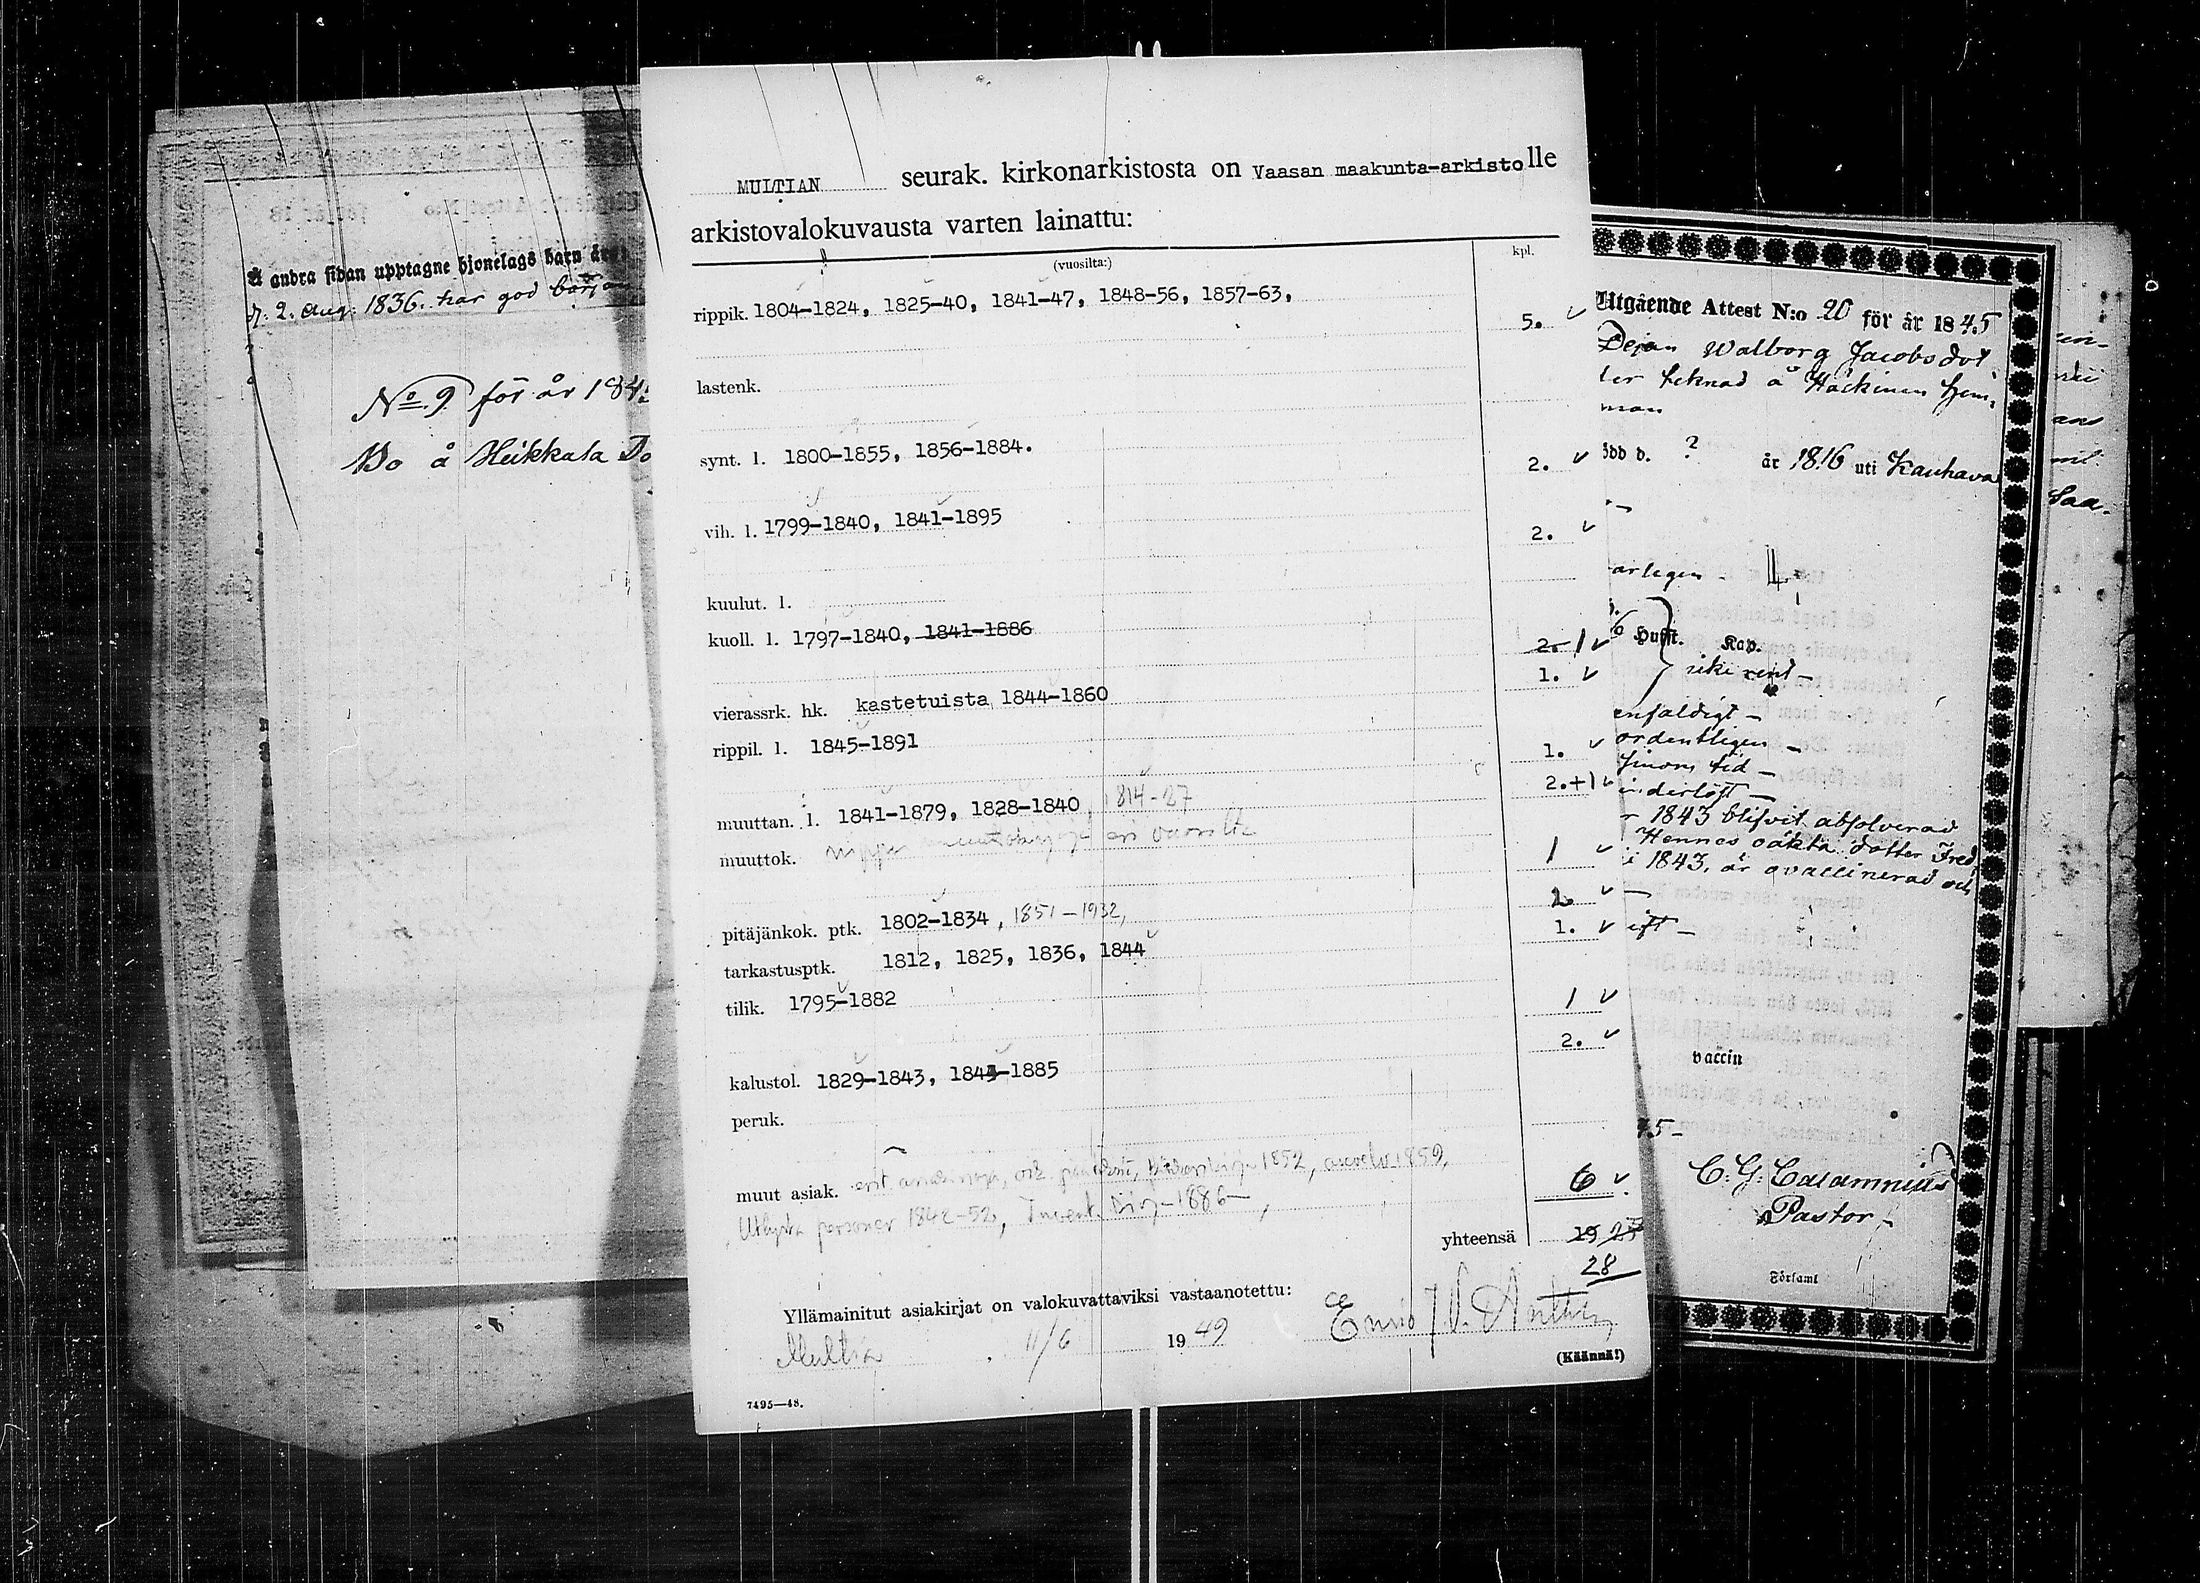 Å andra sidan upptagne hjonelags barn är
d. 2. Aug: 1836. har god början
No 9 för år 184
Do å Heikkala Do
MULTIAN seurak. kirkonarkistosta on Vaasan maakunta-arkistolle
arkistovalokuvausta varten lainattu:
(vuosilta:) kpl.
rippik. 1804-1824, 1825-40, 1841-47, 1848-56, 1857-63, 5. ✓
lastenk.
synt. l. 1800-1855, 1856-1884. 2. ✓
vih. l. 1799-1840, 1841-1895 2. ✓
kuulut. l.
kuoll. l. 1797-1840, 1841-1886 2. 1 ✓
vierassrk. hk. kastetuista 1844-1860 1. ✓
rippil. l. 1845-1891 1. ✓
muuttan. l. 1841-1879, 1828-1840, 1814-27 2.+1 ✓
muuttok. eri vuosilta 1 ✓
pitäjänkok. ptk. 1802-1834, 1851-1932, 2. ✓
tarkastusptk. 1812, 1825, 1836, 1844 1. ✓
tilik. 1795-1882 1 ✓
kalustol. 1829-1843, 1843-1885 2. ✓
peruk.
muut asiak. 1852, 1859, 6 ✓
Utlysta personer 1842-52, Invent. kirja 1886
yhteensä 19 25
28
Yllämainitut asiakirjat on valokuvattaviksi vastaanotettu:
Multia 11/6 1949
(Käännä!)
7495—48.
Utgående Attest N:o 20 för år 1845
Dejan Walborg Jacobsdot
ter teknad å Häckinen hem,
man
ödd d. ? år 1816 uti Kauhava
arligen -
Hufst. Kap.
riki rent -
enfaldigt -
ordentligen -
hinom tid -
inderlöst -
r 1843 blifvit absolverad
Hennes oäkta dotter Fred
i 1843, är ovaccinerad och
ift -
vaccin
45-
C. G. Calamnius
Pastor -
Församl